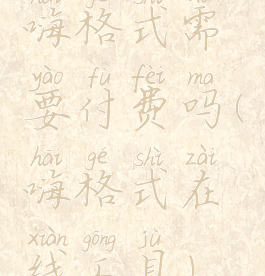 hāi gé shì xū
嗨格式需
yào fù fèi ma
要付费吗(
hāi gé shì zài
嗨格式在
xiàn gōng jù
线工具)